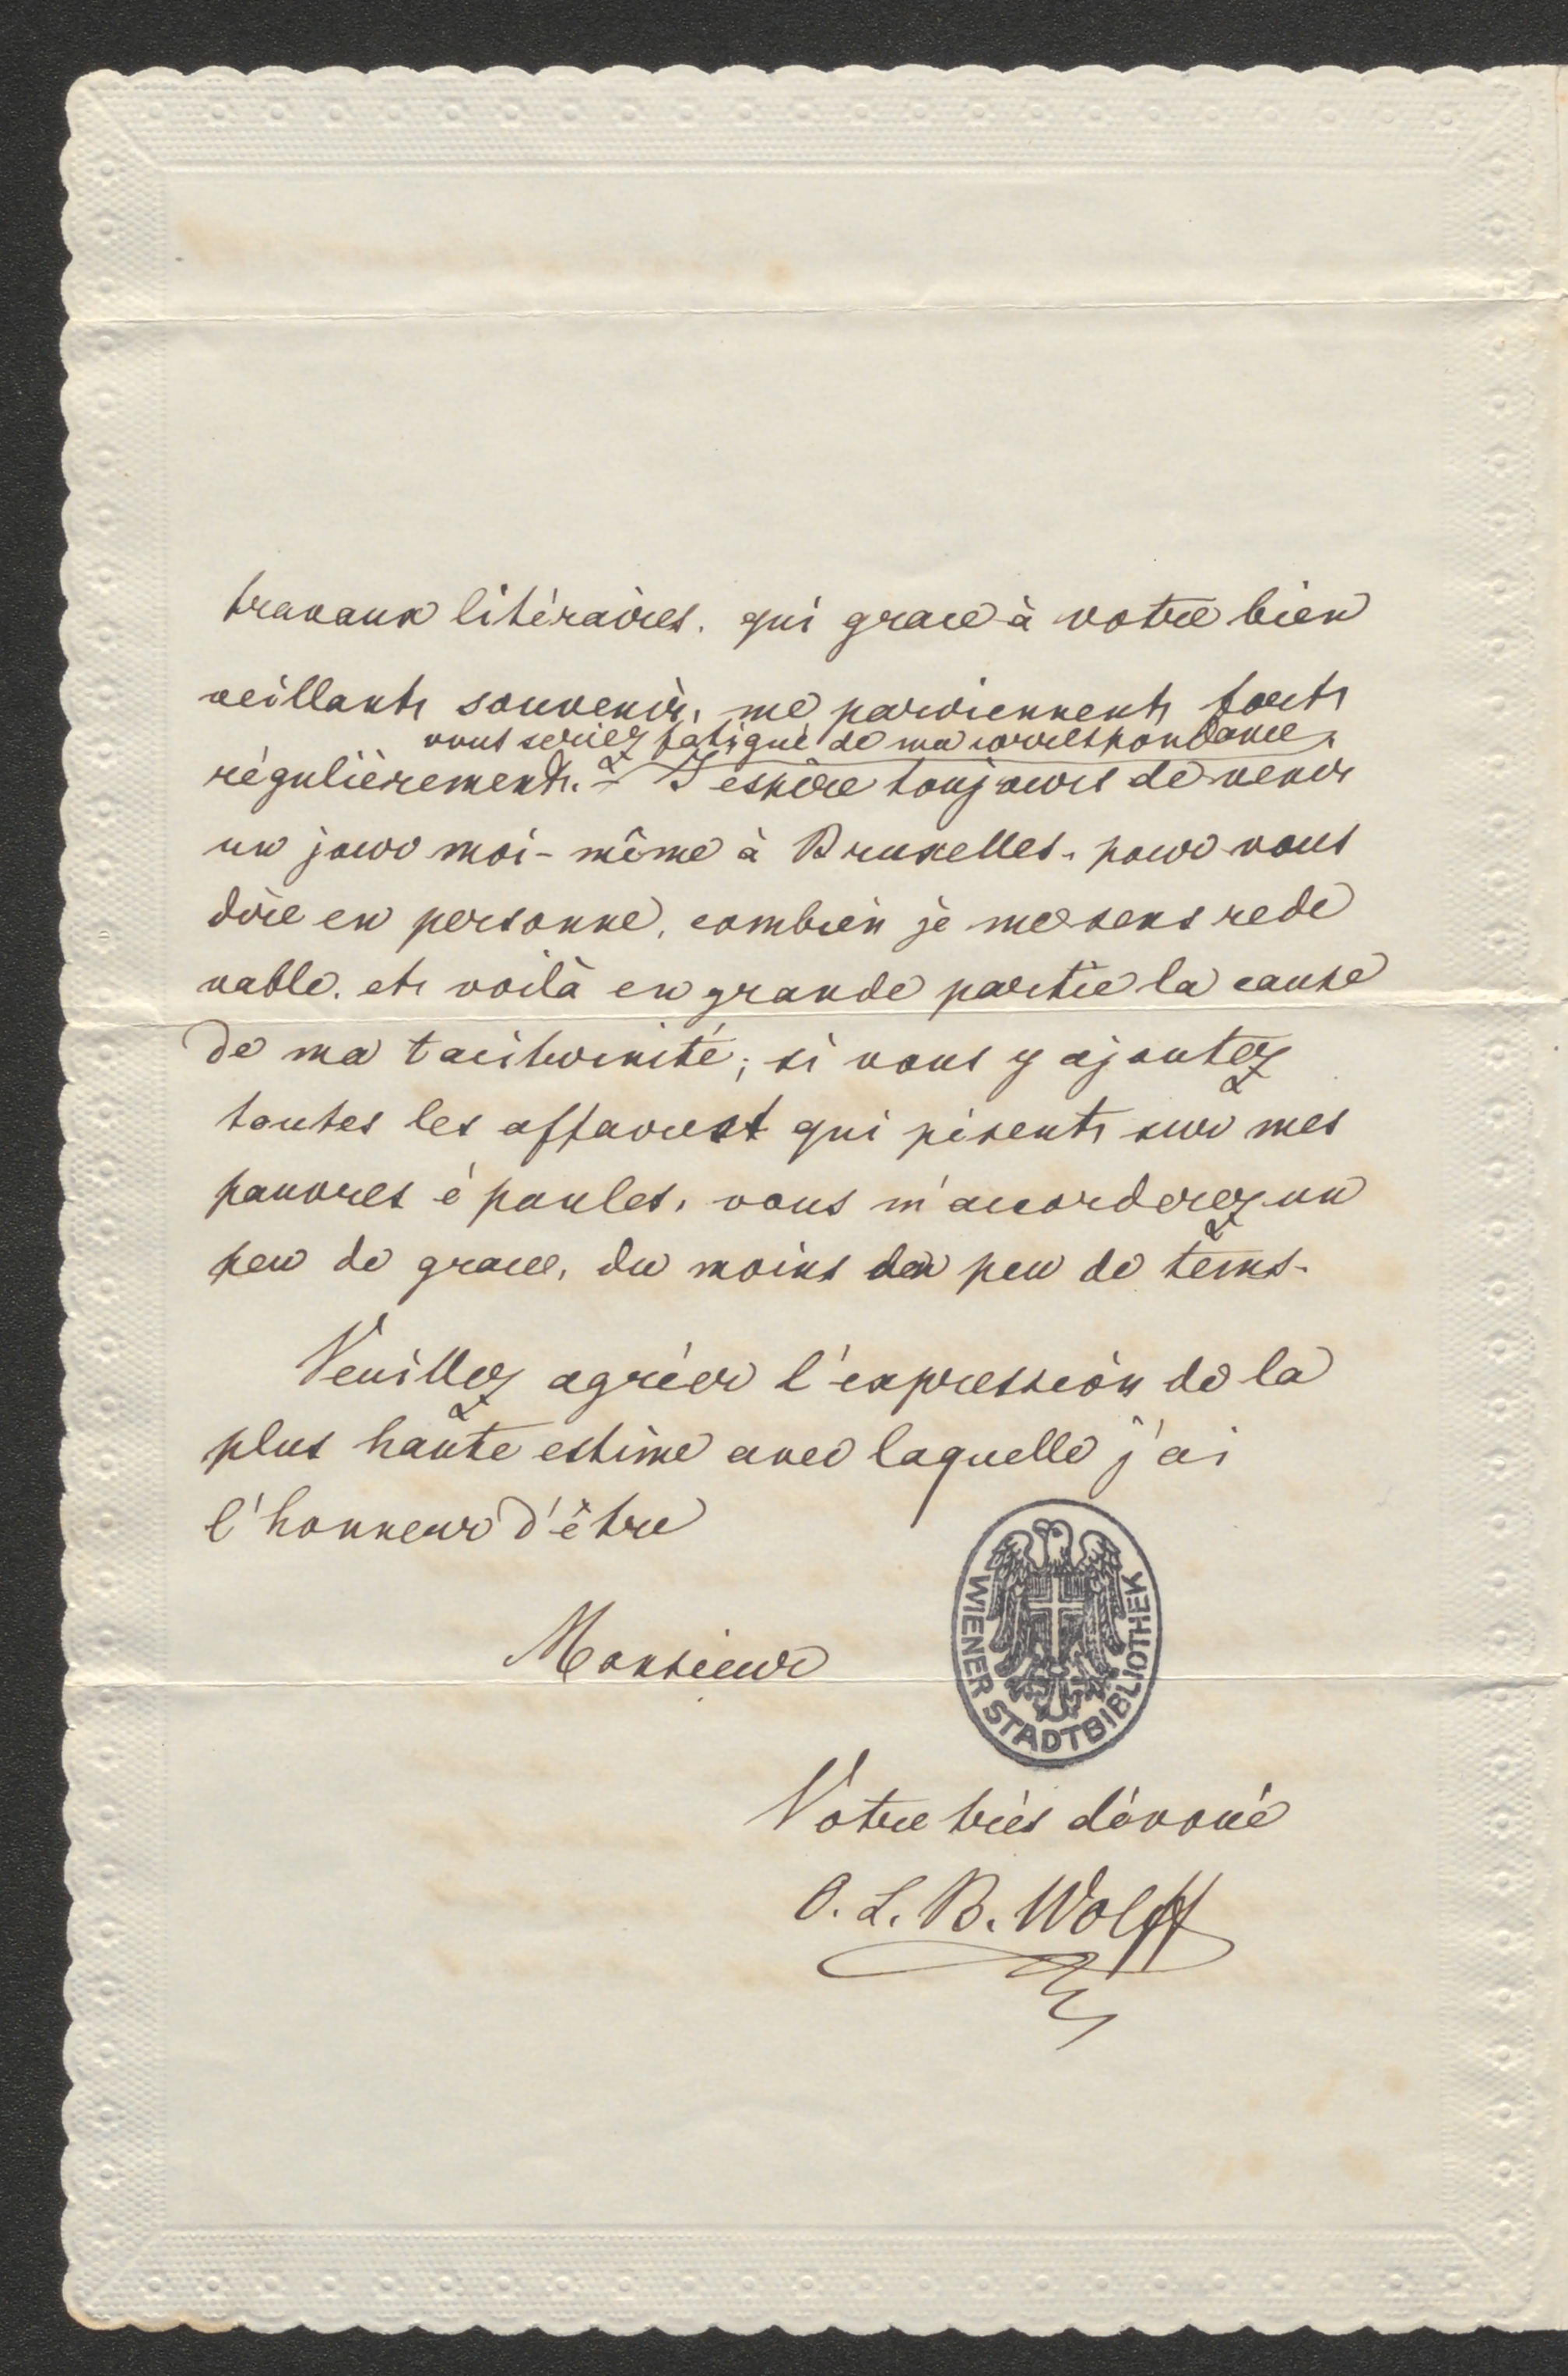 travaux litéraires. qui grace à votre bien
veillant souvenir, me parviennent fort
vous seriez fatigué de ma correspondance.
régulièrement. – J'espère toujours de venir
un jour moi-même à Bruxelles. pour vous
dire en personne, combien je me sens rede
vable. et voilà en grande partie la cause
de ma taciturnité; si vous y ajoutez
toutes les affaires qui pèsent sur mes
pauvres épaules, vous m'accorderez un
peu de grace, du moins un peu de tems.
Veuillez agréer l'expression de la
plus haute estime avec laquelle j'ai
l'honneur d'être
Monsieur
WIENER STADTBIBLIOTHEK
Votre très dévoué
O. L. B. Wolff